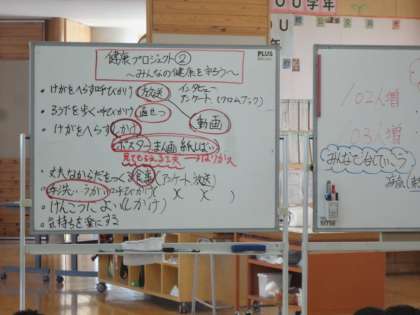 学年
PLUS
健康プロジェクト②
〜みんなの健康を守ろう〜
・けがをへらす呼びかけ 放送 インタビュー
アンケート（クロムブック）
・ろうかを歩く呼びかけ 動画
・けがへらすしかけ
ポスター まん画 紙しばい
見てもらえる工夫
・丈夫なからだをつくる（アンケート、放送）
・手洗い・うがいの呼びかけ（ ）（ ）（ ）
・けんこうによい（しかけ）
・気持ちを楽にする
102人増
103人増